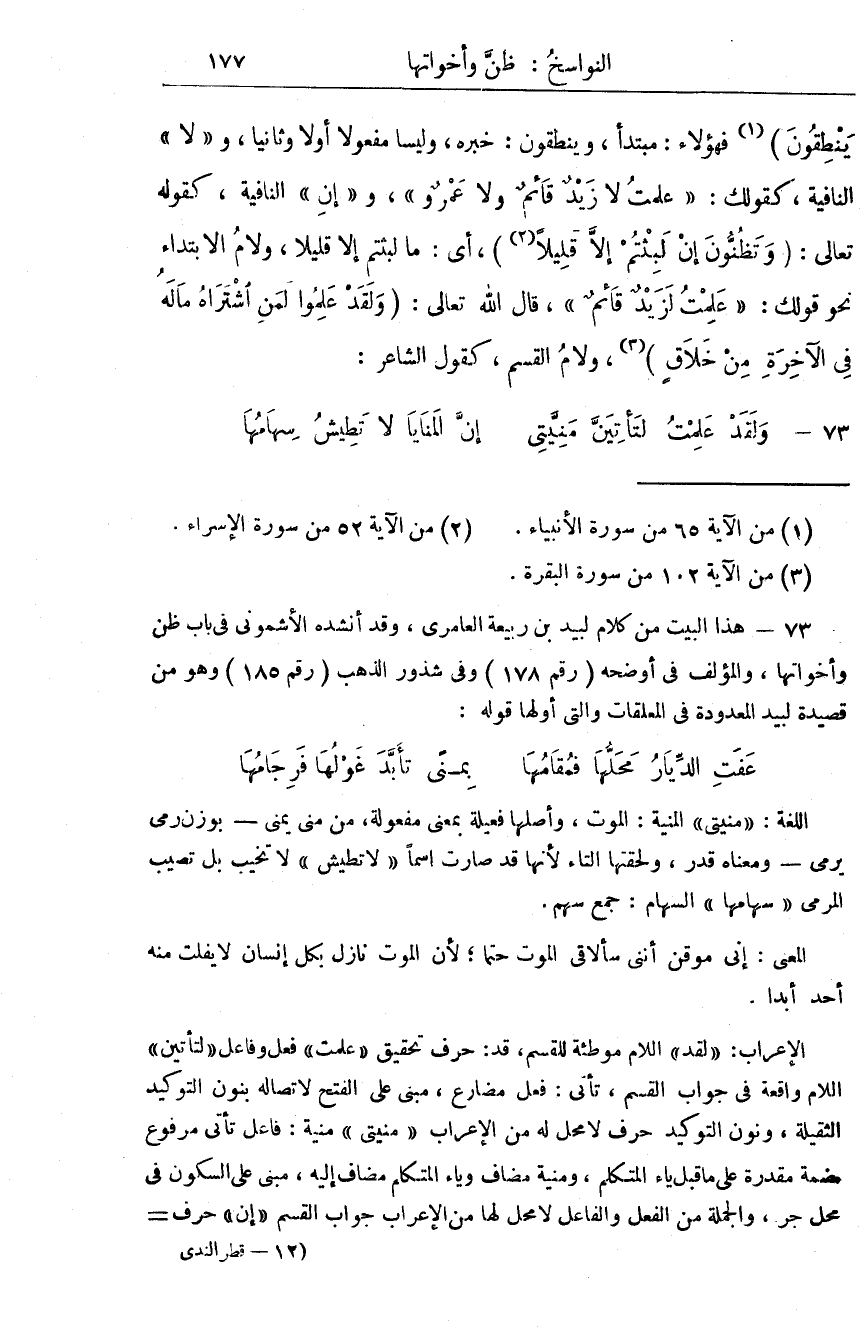 النواسخُ : ظنَّ وأخواتها ١٧٧
يَنْطِقُونَ ) (١) فهؤلاء : مبتدأ ، وينطقون : خبره ، وليسا مفعولا أولا وثانيا ، و « لا »
النافية ، كقولك : « علمتُ لا زَيْدٌ قَائمٌ ولا عَمْرٌو » ، و « إن » النافية ، كقوله
تعالى : ( وَتَظُنُّونَ إنْ لَبِثْتُمْ إلاَّ قَلِيلاً (٢) ) ، أى : ما لبثتم إلا قليلا ، ولامُ الابتداء
نحو قولك : « عَلِمْتُ لَزَيْدٌ قَائمٌ » ، قال الله تعالى : ( وَلَقَدْ عَلِمُوا لَمَنِ ٱشْتَرَاهُ مَالَهُ
فِى الْآخِرَةِ مِنْ خَلَاقٍ ) (٣) ، ولامُ القسم ، كقول الشاعر :
٧٣ – وَلَقَدْ عَلِمْتُ لَتَأتِيَنَّ مَنِيَّتِى إنَّ الْمَنَايَا لا تَطِيشُ سِهَامُهَا
(١) من الآية ٦٥ من سورة الأنبياء . (٢) من الآية ٥٢ من سورة الإسراء .
(٣) من الآية ١٠٢ من سورة البقرة .
٧٣ – هذا البيت من كلام لبيد بن ربيعة العامرى ، وقد أنشده الأشمونى فى باب ظن
وأخواتها ، والمؤلف فى أوضحه ( رقم ١٧٨ ) وفى شذور الذهب ( رقم ١٨٥ ) وهو من
قصيدة لبيد المعدودة فى المعلقات والتى أولها قوله :
عَفَتِ الدِّيَارُ مَحَلُّهَا فَمُقَامُهَا بِمِنًى تأَبَّدَ غَوْلُهَا فَرِجَامُهَا
اللغة : «منيتى» المنية : الموت ، وأصلها فعيلة بمعنى مفعولة، من منى يمنى – بوزن رمى
يرمى – ومعناه قدر ، ولحقتها التاء لأنها قد صارت اسماً « لا تطيش » لا تخيب بل تصيب
المرمى « سهامها » السهام : جمع سهم .
المعنى : إنى موقن أننى سألاقى الموت حتما ؛ لأن الموت نازل بكل إنسان لايفلت منه
أحد أبدا .
الإعراب: «لقد» اللام موطئة للقسم، قد: حرف تحقيق «علمت» فعل وفاعل «لتأتين»
اللام واقعة فى جواب القسم ، تأتى : فعل مضارع ، مبنى على الفتح لاتصاله بنون التوكيد
الثقيلة ، ونون التوكيد حرف لامحل له من الإعراب « منيتى » منية : فاعل تأتى مرفوع
بضمة مقدرة على ماقبل ياء المتكلم ، ومنية مضاف وياء المتكلم مضاف إليه ، مبنى على السكون فى
محل جر ، والجملة من الفعل والفاعل لامحل لها من الإعراب جواب القسم «إن» حرف =
(١٢ – قطر الندى